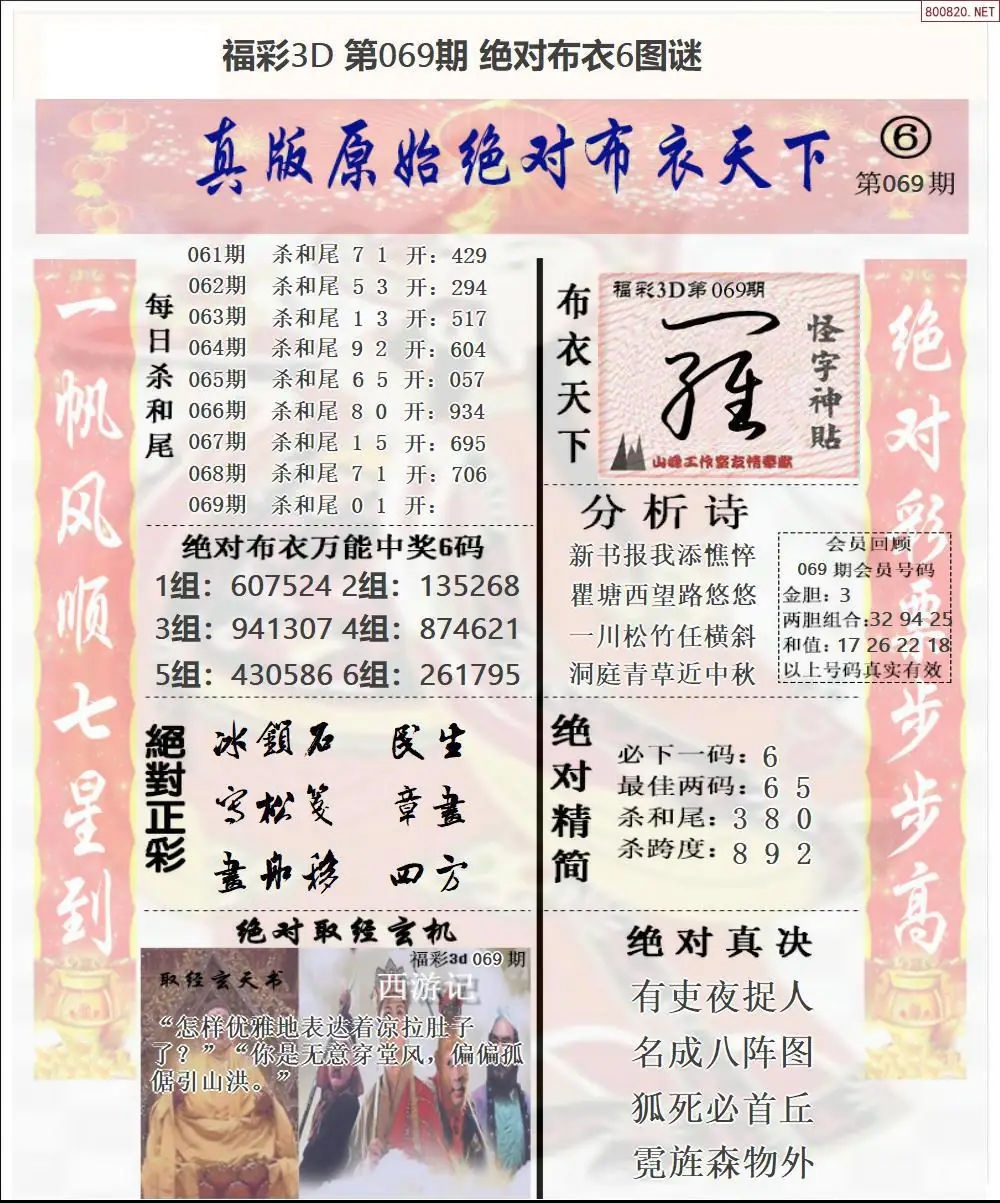 800820.NET
福彩3D 第069期 绝对布衣6图谜
真版原始绝对布衣天下
6
第069期
一帆风顺七星到
每日杀和尾
061期 杀和尾 7 1 开：429
062期 杀和尾 5 3 开：294
063期 杀和尾 1 3 开：517
064期 杀和尾 9 2 开：604
065期 杀和尾 6 5 开：057
066期 杀和尾 8 0 开：934
067期 杀和尾 1 5 开：695
068期 杀和尾 7 1 开：706
069期 杀和尾 0 1 开：
绝对布衣万能中奖6码
1组：607524 2组：135268
3组：941307 4组：874621
5组：430586 6组：261795
絕對正彩
冰鎖石 民生
写松笺 章畫
畫舟移 四方
绝对取经玄机
福彩3d 069 期
取经玄天书
西游记
“怎样优雅地表达着凉拉肚子
了？”“你是无意穿堂风，偏偏孤
倨引山洪。”
布衣天下
福彩3D第069期
怪字神貼
山峰工作室友情奉献
分析诗
新书报我添憔悴
瞿塘西望路悠悠
一川松竹任横斜
洞庭青草近中秋
会员回顾
069 期会员号码
金胆：3
两胆组合:32 94 25
和值：17 26 22 18
以上号码真实有效
绝对精简
必下一码：6
最佳两码：6 5
杀和尾：3 8 0
杀跨度：8 9 2
绝对真决
有吏夜捉人
名成八阵图
狐死必首丘
霓旌森物外
绝对彩票步步高